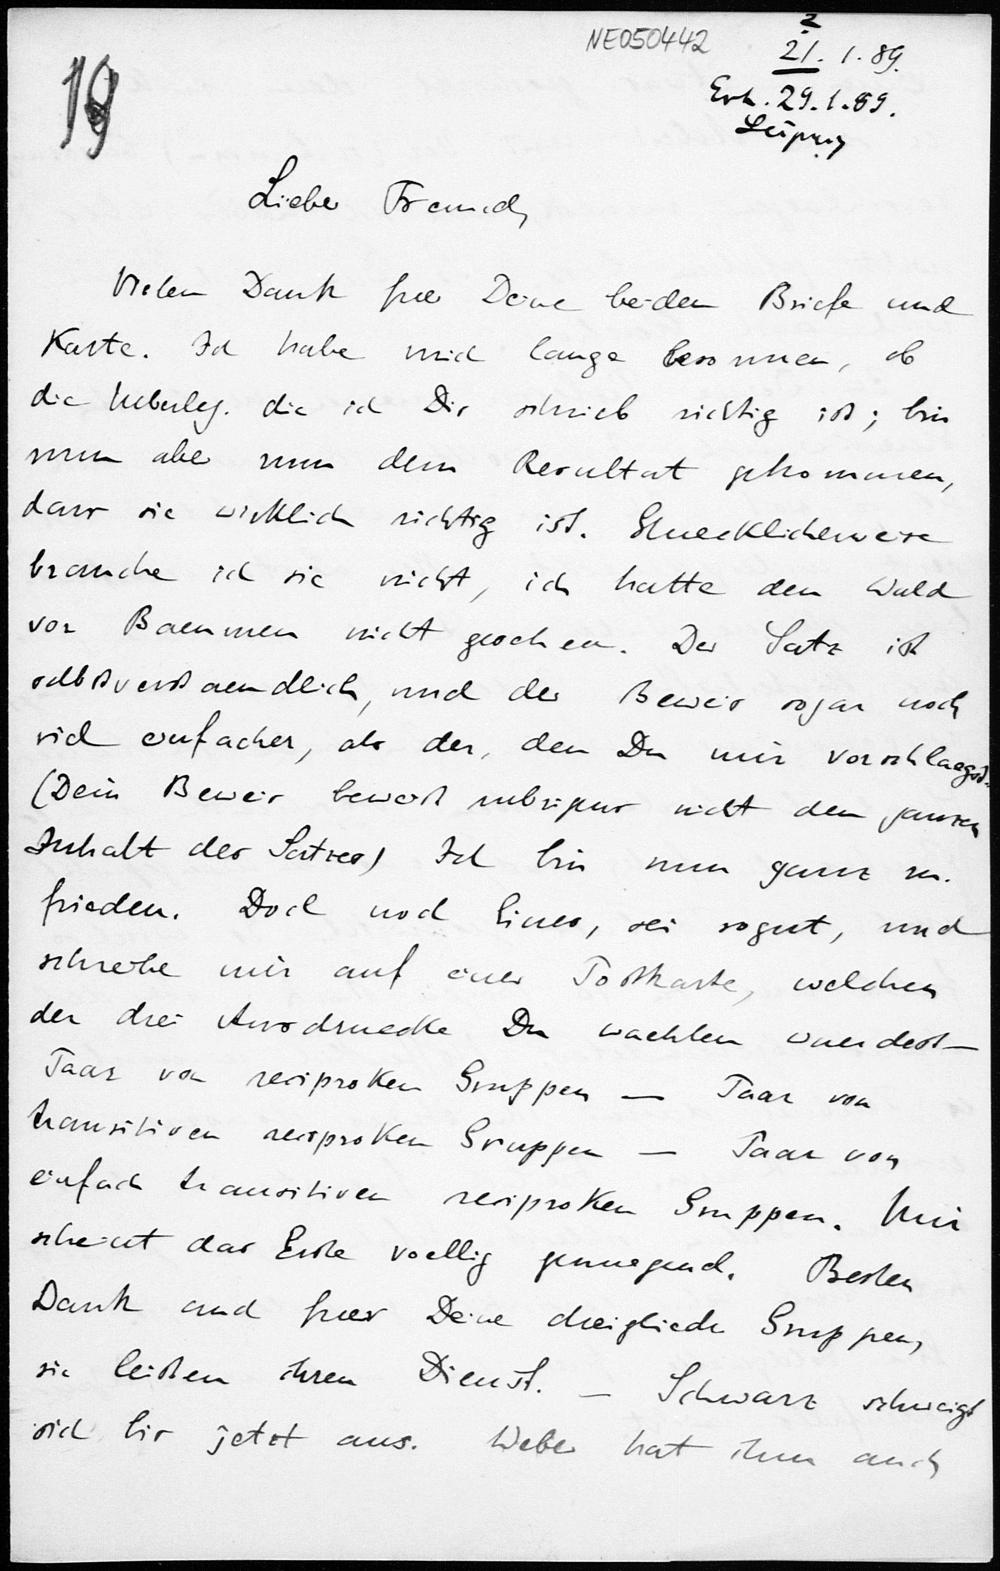 NE050442
2
21. 1. 89.
Erh. 29.1.89.
Leipzig
19
Lieber Freund,
Vielen Dank fuer Deine beiden Briefe und
Karte. Ich habe mich lange besonnen, ob
die Ueberleg. die ich Dir schrieb richtig ist; bin
nun aber zum dem Resultat gekommen,
dass sie wirklich richtig ist. Gluecklicherweise
brauche ich sie nicht, ich hatte den Wald
vor Baeumen nicht gesehen. Der Satz ist
selbstverstaendlich, und der Beweis sogar noch
viel einfacher, als der, den Du mir vorschlaegst.
(Dein Beweis beweist uebrigens nicht den ganzen
Inhalt des Satzes) Ich bin nun ganz zu-
frieden. Doch noch Eines, sei so gut, und
schreibe mir auf einer Postkarte, welchen
der drei Ausdruecke Du waehlen wuerdest —
Paar von reciproken Gruppen — Paar von
transitiven reciproken Gruppen — Paar von
einfach transitiven reciproken Gruppen. Mir
scheint das Erste voellig genuegend. Besten
Dank auch fuer Deine dreigliedr. Gruppen,
sie leisten ihren Dienst. — Schwarz schweigt
sich bis jetzt aus. Weber hat ihm auch